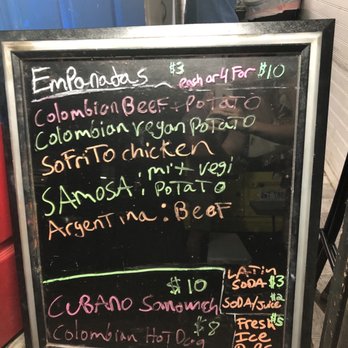 Empanadas $3 each or 4 For $10
Colombian Beef + Potato
Colombian vegan Potato
SoFriTo chicken
SAmosA: mixt vegi
PoTaTo
Argentina: BeeF
$10
CUBANO Sandwich
Colombian HoT Dog $8
LATin
SoDA $3
SoDA/Juice $2
Fresh $5
Ice